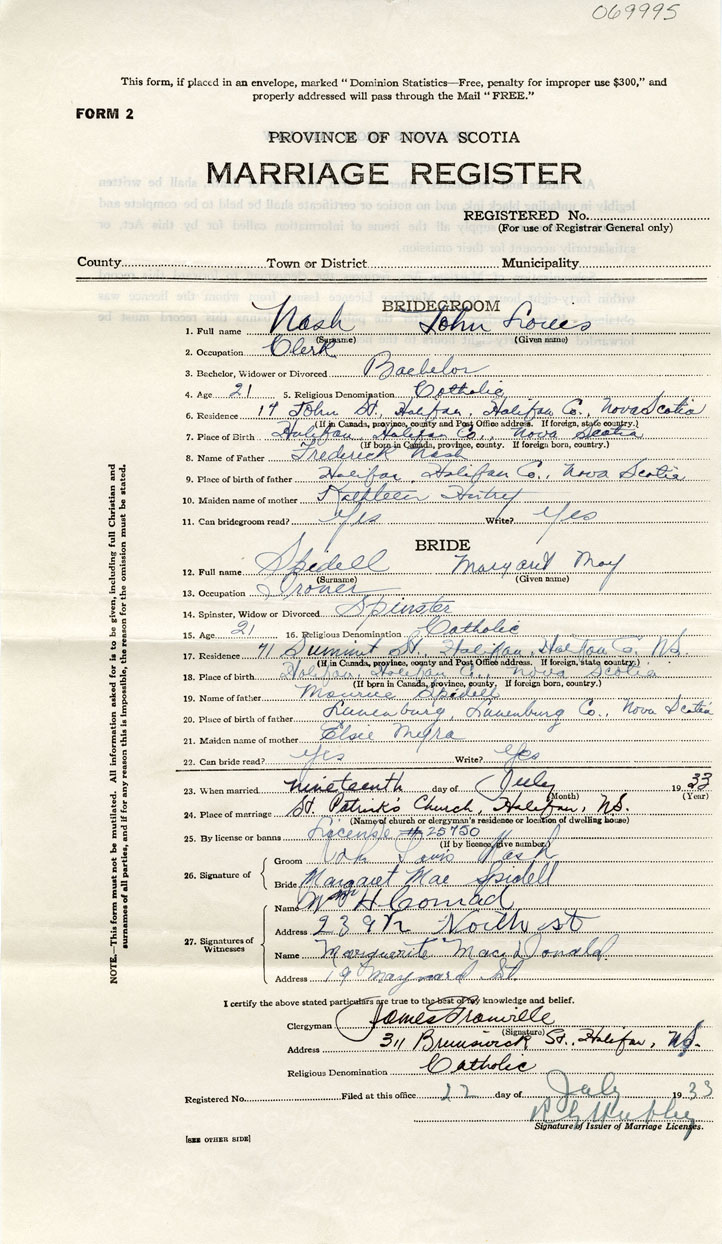 069995
This form, if placed in an envelope, marked "Dominion Statistics—Free, penalty for improper use $300," and
properly addressed will pass through the Mail "FREE."
FORM 2
PROVINCE OF NOVA SCOTIA
MARRIAGE REGISTER
REGISTERED No.
(For use of Registrar General only)
County Town or District Municipality
BRIDEGROOM
1. Full name Nash John Louis
(Surname) (Given name)
2. Occupation Clerk
3. Bachelor, Widower or Divorced Bachelor
4. Age 21 5. Religious Denomination Catholic
6. Residence 17 John St., Halifax, Halifax Co., Nova Scotia
(If in Canada, province, county and Post Office address. If foreign, state country.)
7. Place of Birth Halifax, Halifax Co., Nova Scotia
(If born in Canada, province, county. If foreign born, country.)
8. Name of Father Frederick Nash
9. Place of birth of father Halifax, Halifax Co., Nova Scotia
10. Maiden name of mother Kathleen
11. Can bridegroom read? Yes Write? Yes
BRIDE
12. Full name Spidell Margaret May
(Surname) (Given name)
13. Occupation Ironer
14. Spinster, Widow or Divorced Spinster
15. Age 21 16. Religious Denomination Catholic
17. Residence 71 Summit St., Halifax, Halifax Co. N.S.
(If in Canada, province, county and Post Office address. If foreign, state country.)
18. Place of birth Halifax Halifax Co. Nova Scotia
(If born in Canada, province, county. If foreign born, country.)
19. Name of father Maurice Spidell
20. Place of birth of father Lunenburg, Lunenburg Co., Nova Scotia
21. Maiden name of mother Elsie
22. Can bride read? Yes Write? Yes
23. When married nineteenth day of July 1933
(Month) (Year)
24. Place of marriage St. Patrick's Church, Halifax, N.S.
(Name of church or clergyman's residence or location of dwelling house)
25. By license or banns License # 25750
(If by licence, give number.)
26. Signature of
Groom John Louis Nash
Bride Margaret Mae Spidell
27. Signatures of Witnesses
Name Mrs H Conrad
Address 239½ North st
Name Marguerite MacDonald
Address 19 Maynard St.
I certify the above stated particulars are true to the best of my knowledge and belief.
Clergyman James
(Signature)
Address 311 Brunswick St., Halifax, N.S.
Religious Denomination Catholic
Registered No. Filed at this office 22 day of July 1933
Signature of Issuer of Marriage Licenses.
[SEE OTHER SIDE]
NOTE.—This form must not be mutilated. All information asked for is to be given, including full Christian and
surnames of all parties, and if for any reason this is impossible, the reason for the omission must be stated.